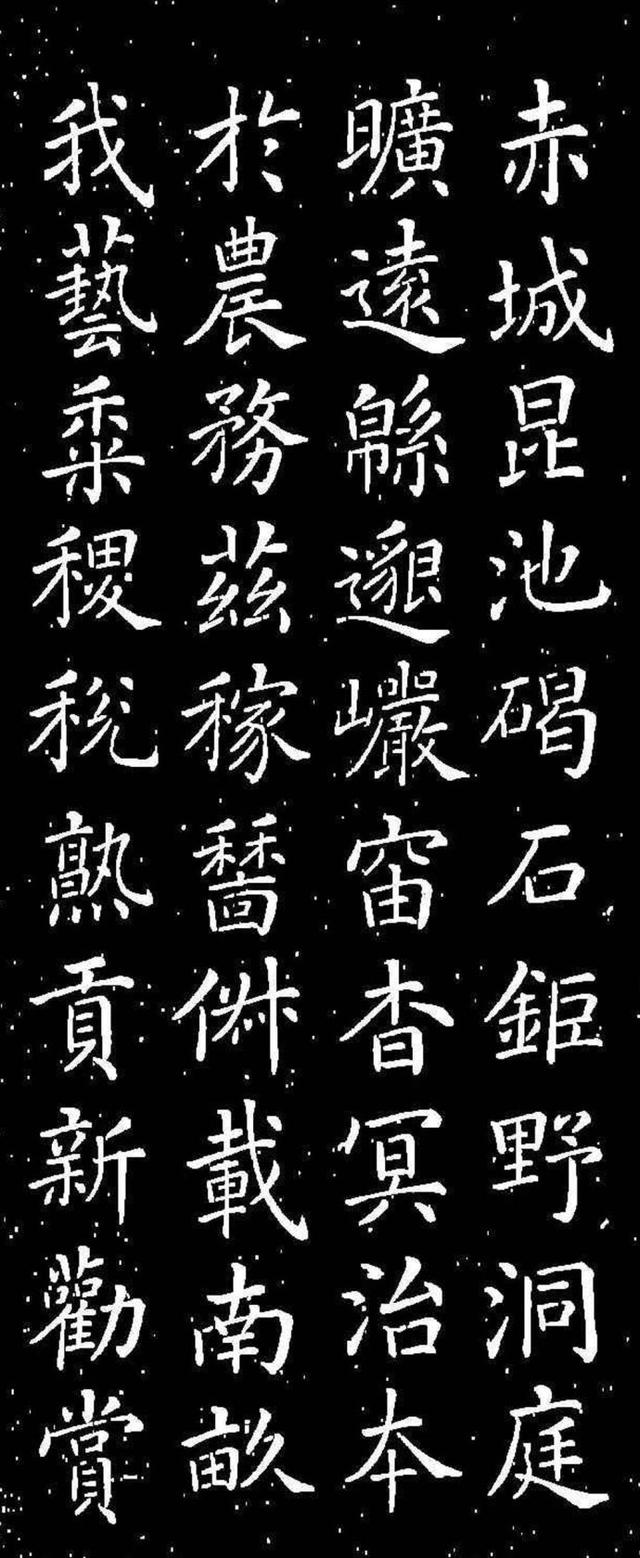 赤城昆池碣石鉅野洞庭
曠遠緜邈巖岫杳冥治本
於農務茲稼穡俶載南畝
我藝黍稷稅熟貢新勸賞